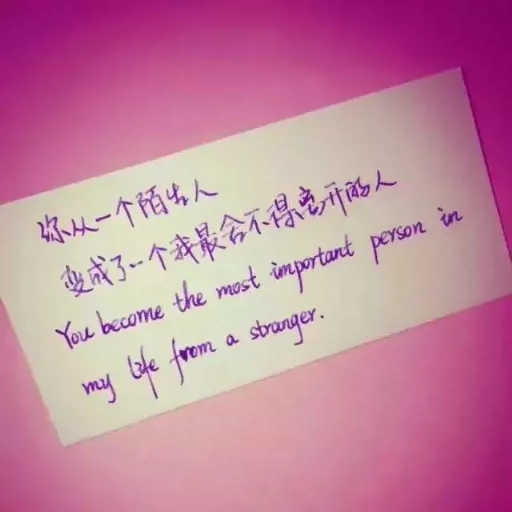 你从一个陌生人
变成了一个我最舍不得离开的人
You become the most important person in
my life from a stranger.